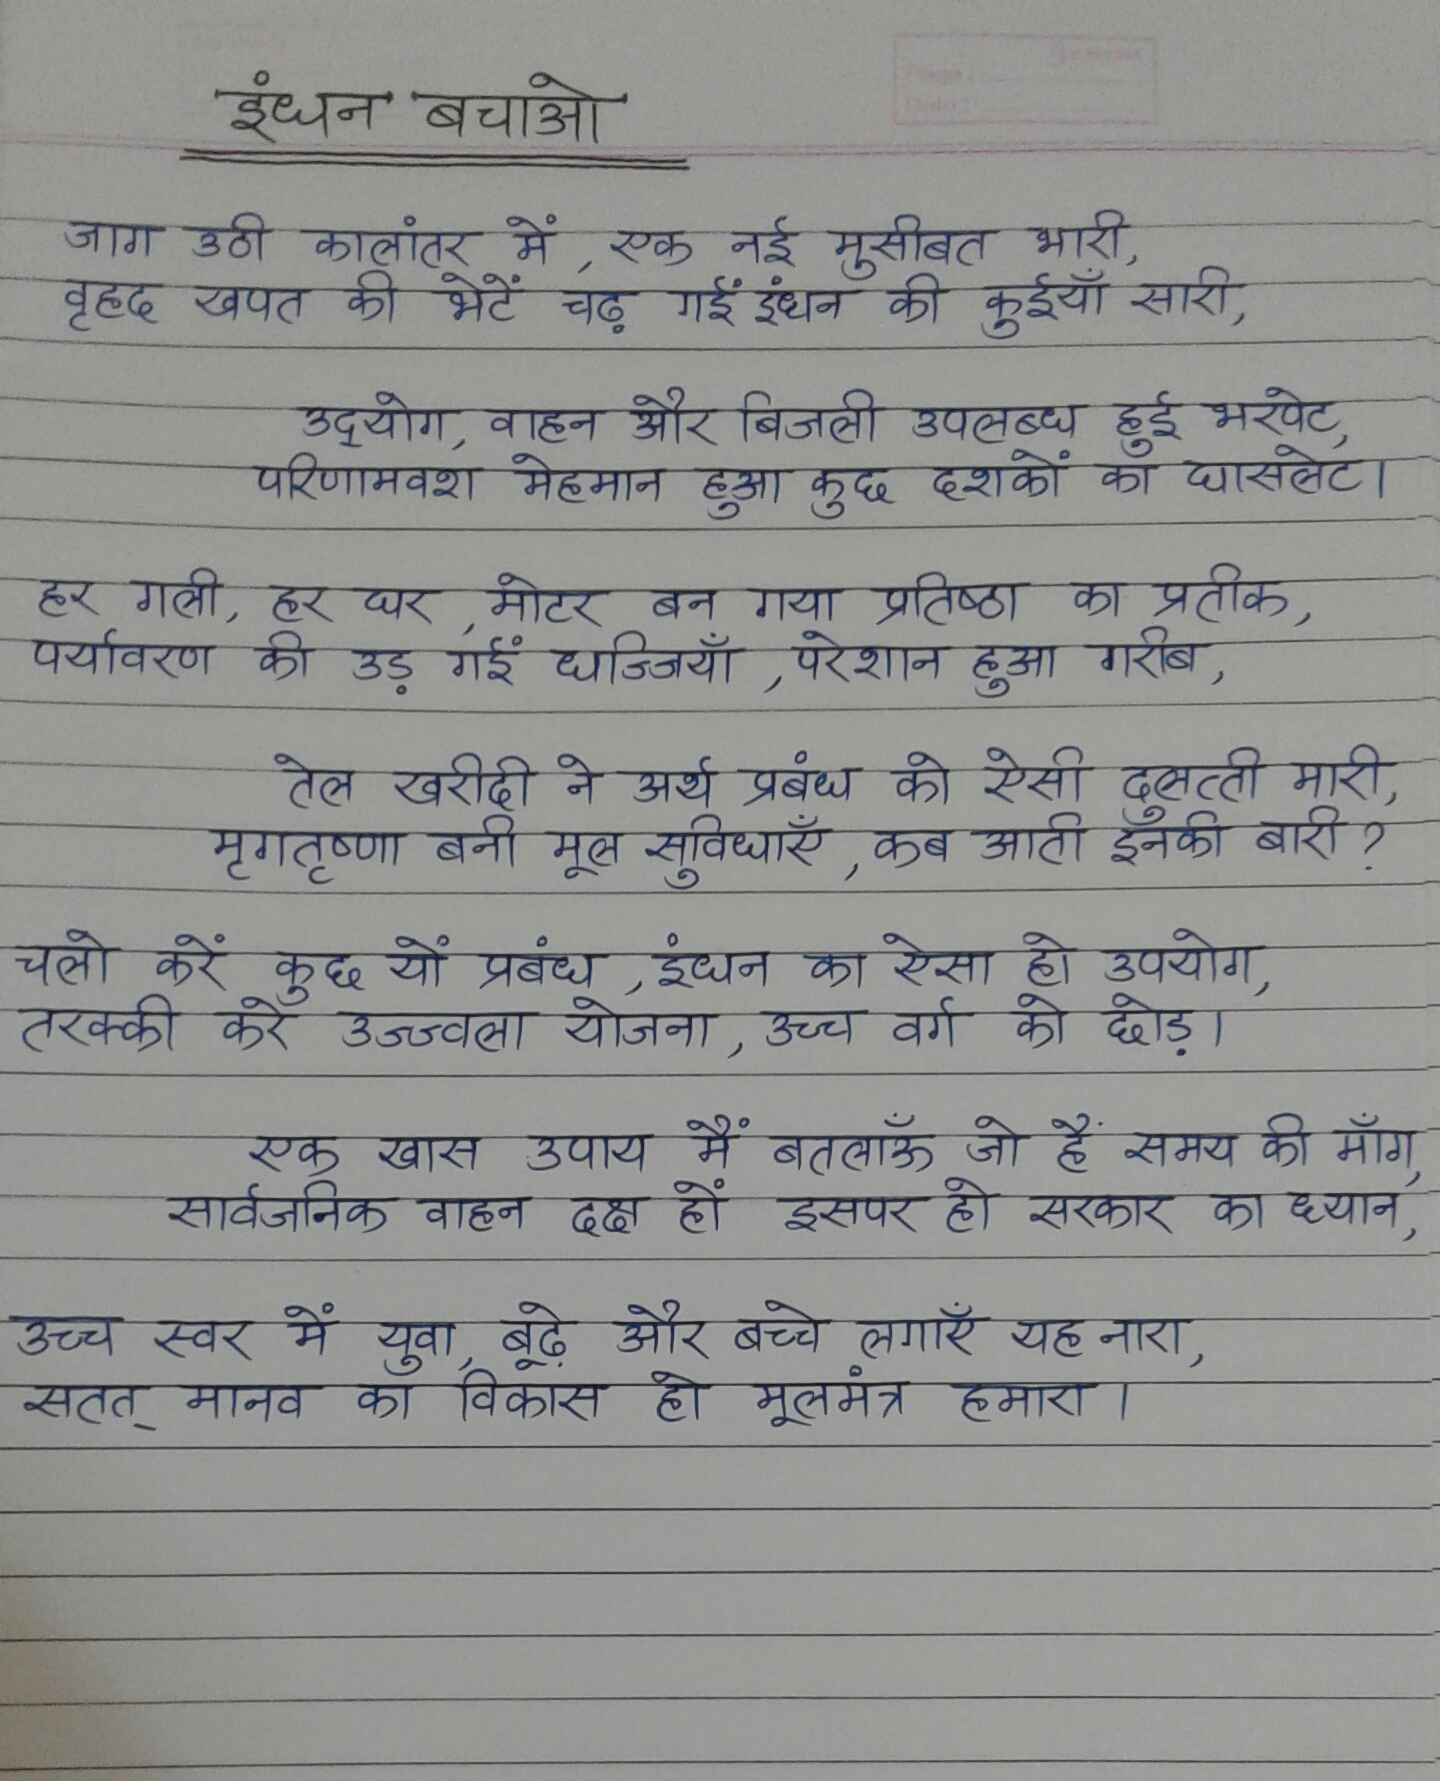 इंधन बचाओ
जाग उठी कालांतर में, एक नई मुसीबत भारी,
वृहद खपत की भेटें चढ़ गईं इंधन की कुईयाँ सारी,
उद्‌योग, वाहन और बिजली उपलब्ध हुई भरपेट,
परिणामवश मेहमान हुआ कुछ दशकों का घासलेट।
हर गली, हर घर, मोटर बन गया प्रतिष्ठा का प्रतीक,
पर्यावरण की उड़ गईं धज्जियाँ, परेशान हुआ गरीब,
तेल खरीदी ने अर्थ प्रबंध को ऐसी दुलत्ती मारी,
मृगतृष्णा बनी मूल सुविधाएँ, कब आती इनकी बारी?
चलो करें कुछ यों प्रबंध, इंधन का ऐसा हो उपयोग,
तरक्की करें उज्ज्वला योजना, उच्च वर्ग को छोड़।
एक खास उपाय मैं बतलाऊँ जो हैं समय की माँग,
सार्वजनिक वाहन दक्ष हों इसपर हो सरकार का ध्यान,
उच्च स्वर में युवा, बूढ़े और बच्चे लगाएँ यह नारा,
सतत् मानव का विकास हो मूलमंत्र हमारा।